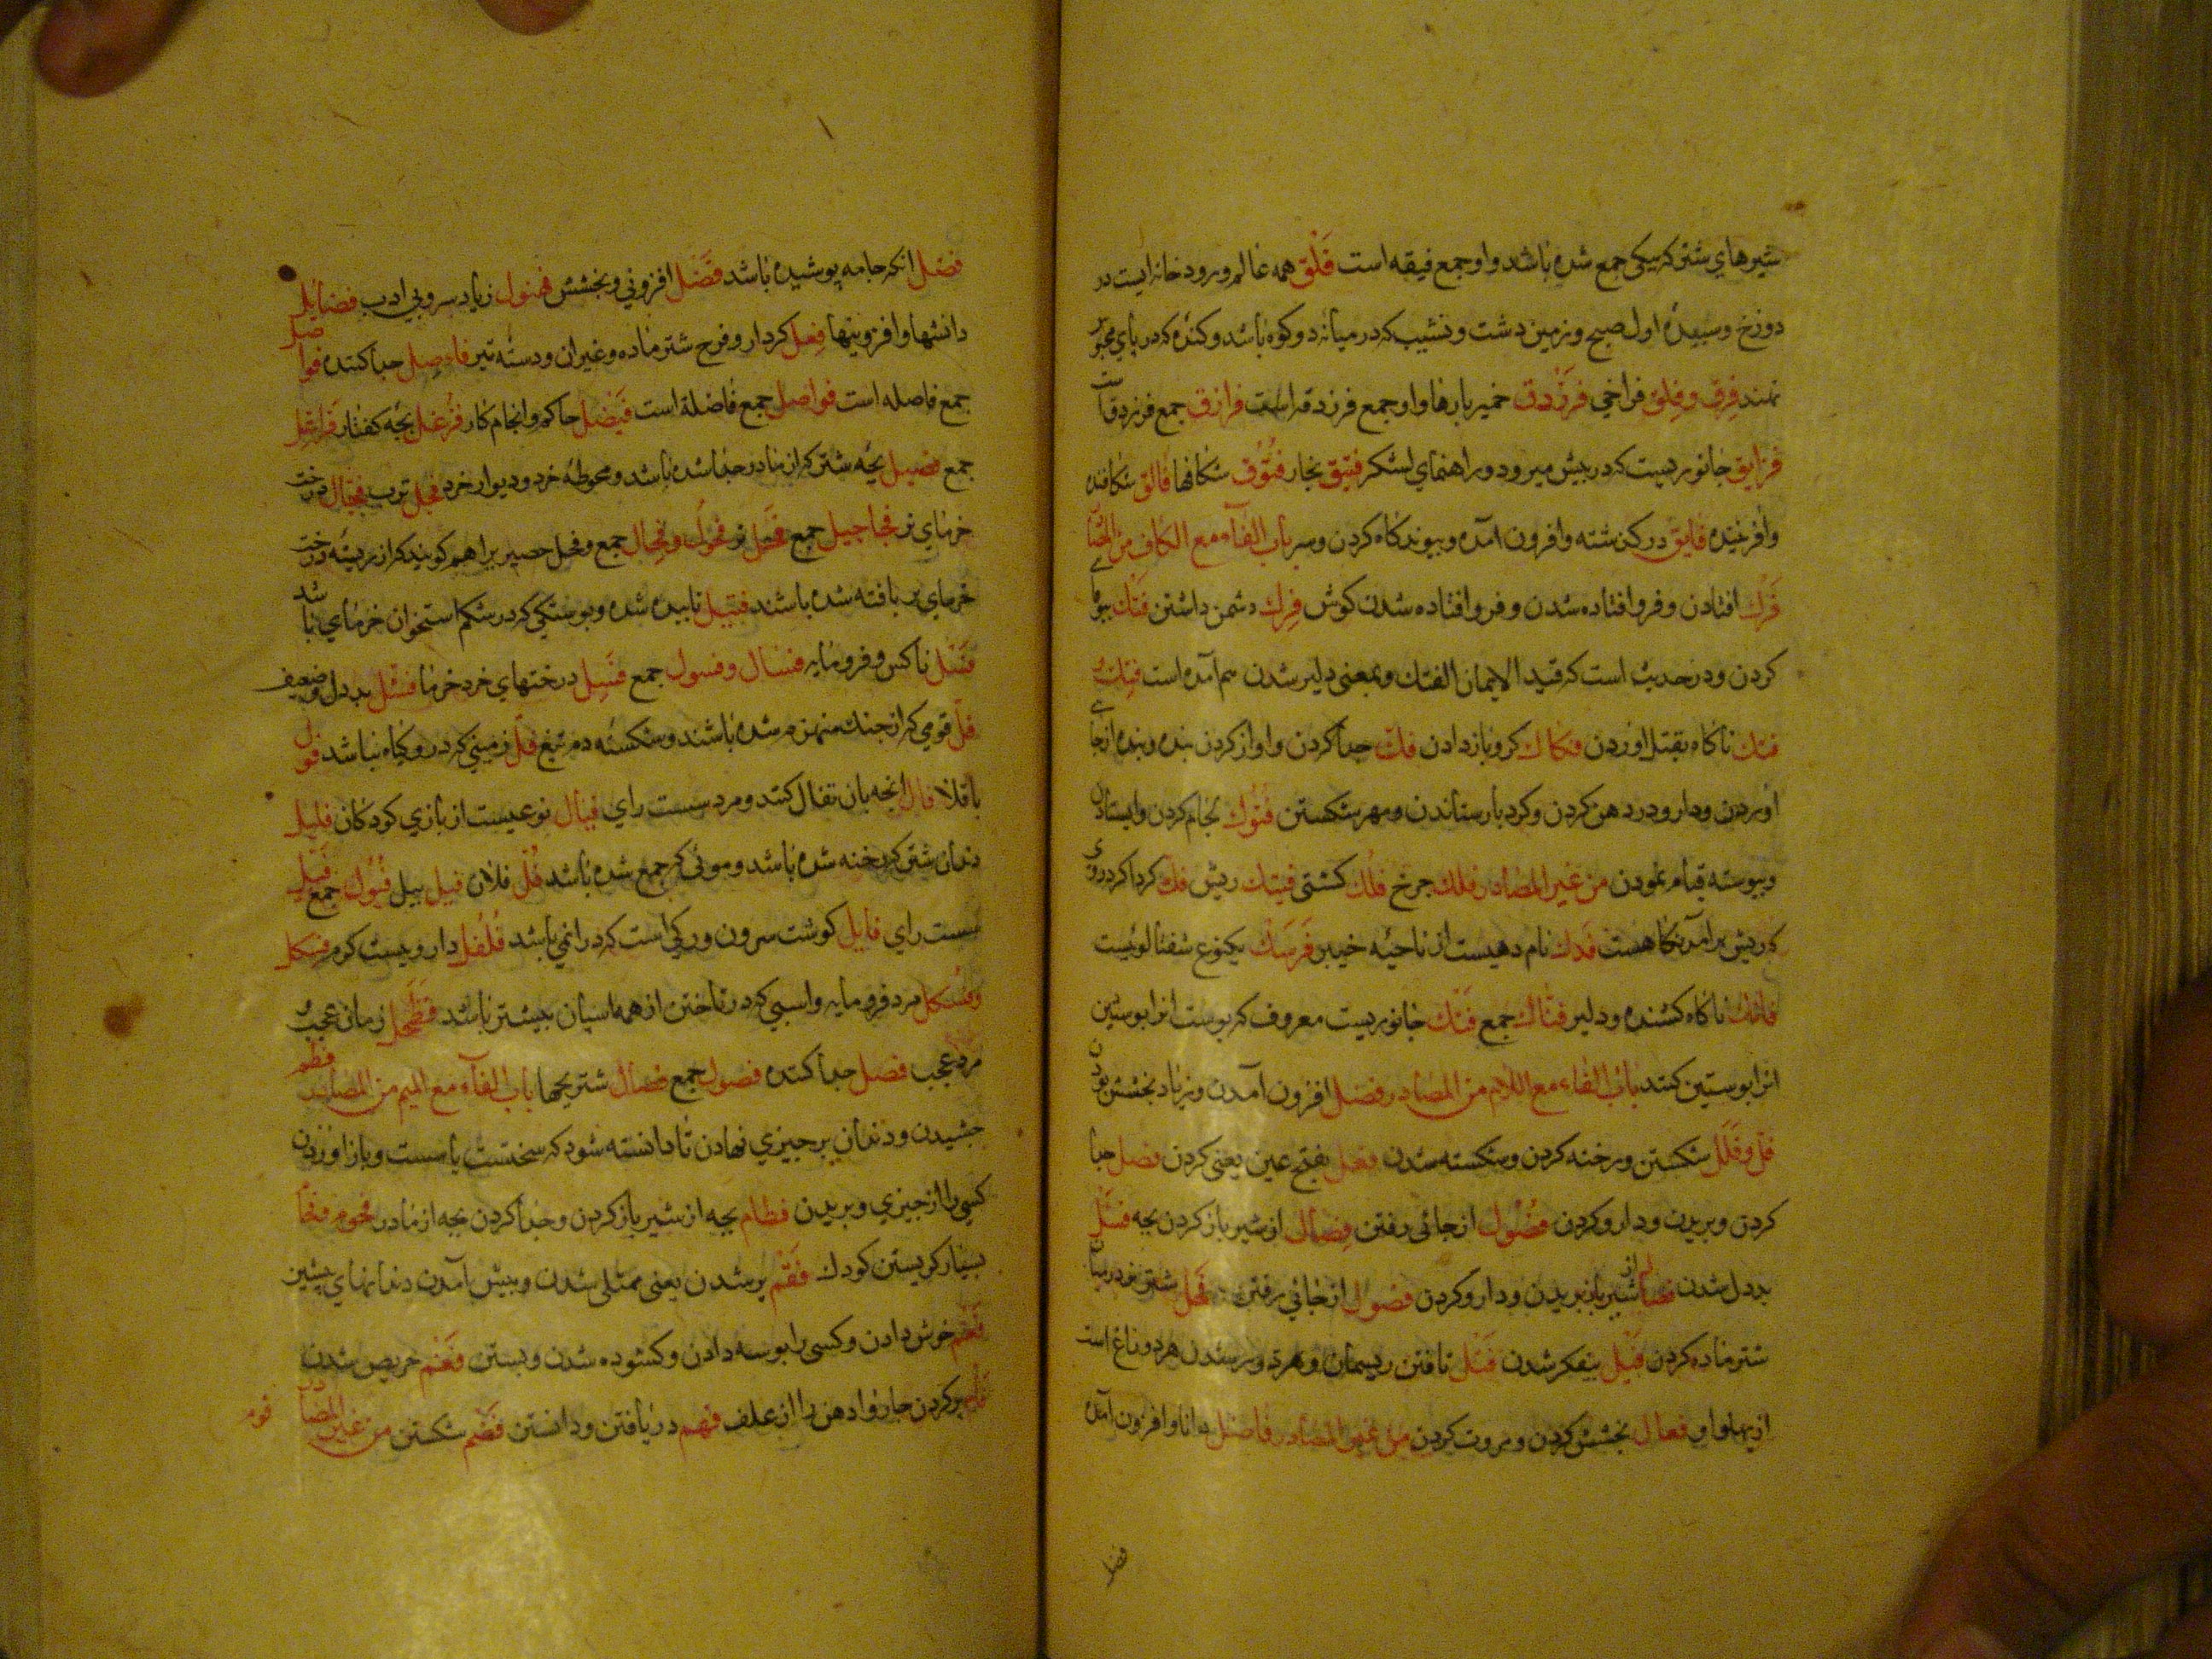 شیرهای شتر که یکی جمع شده باشد و او جمع فیقه است فَلَق همه عالم و رودخانه ایست در
دوزخ و سپیدهٔ اول صبح و زمین دشت و نشیب که در میانهٔ دو کوه باشد و کنده که در پای محبوس
نهند فِرق و فِلق فراخی فرزدق خمیر بارها و او جمع فرزدقه است فرازق جمع فرزدقست
فرانق جانوریست که در پیش میرود و راهنمای لشکر فیتق نجار فتوق شکافها فالق شکافنده
و آفریننده فایق در گذشته و افزون آمده و پیوندگاه گردن و سر باب الفاء مع الکاف من المصادر
فَرك افتادن و فرو افتاده شدن و فرو افتاده شدن گوش فِرك دشمن داشتن فتك
کردن و در حدیث است که قید الایمان الفتك و بمعنی دلیر شدن هم آمده است فِتك
فتك ناگاه بقتل اوردن فكاك گرو باز دادن فكّ جدا کردن و اواز کردن بنده و بنده از جا
اوردن و دارو در دهن کردن و گرد بازستاندن و مهر شکستن فُنوك لجام کردن و ایستادن
و پیوسته قیام نمودن من غیر المصادر فلك چرخ فلك کشتی فنیك ریش فك گرداگرد روی
که ریش بر آمدنگاهست فدك نام دهیست از ناحیهٔ خیبر فرسك یکنوع شفتالویست
فاتك ناگاه کشنده و دلیر فتاك جمع فنك جانوریست معروف که پوست انرا پوستین
انرا پوستین کنند باب الفاء مع اللام من المصادر فضل افزون آمدن و زیاد بخشش بودن
فل و فلل شکستن و رخنه کردن و شکسته شدن فعل بفتح عین یعنی کردن فصل جدا
کردن و بریدن و دارو کردن فصول از جائی رفتن فصال از شیر باز کردن بچه فشل
بددل شدن فصال از شیر باز بریدن و دارو کردن فصول از جائی رفتن فحل شتر نر در میان
شتر ماده کردن فیل بیفکر شدن فتل تافتن ریسمان و هرد و برشدن هر دو داغ است
از پهلو او فعال بخشش کردن و مروت کردن من غیر المصادر فاضل دانا و افزون آمده
فضل
فضل انکه جامه پوشیده باشد فَضل افزونی و بخشش فضول زیاد سر و بی ادب فضایل
دانشها و افزونیها فِعل کردار و فرج شتر ماده و غیر ان و دستهٔ تیر فاصل جدا کننده فواصل
جمع فاصله است فواضل جمع فاضلة است فیصل حاکم و انجام کار فرعل بچه کفتار فراعل
جمع فصیل بچه شتر که از مادر جدا شده باشد و محوطهٔ خرد و دیوار خرد فجل ترب فحال درخت
خرمای نر فحاحیل جمع فحل نر فحول و فحال جمع و فحل حصیر را هم گویند که از ریشهٔ درخت
خرمای نر بافته شده باشند فتیل تابیده شده و پوستکی که در شکم استخوان خرمای باشد
فسل ناکس و فرومایه فسال و فسول جمع فسیل درختهای خرد خرما فشل بددل و ضعیف
فلّ قومی که از جنك منهزم شده باشند و شکستهٔ دم تیغ فلّ زمینی که در و گیاه نباشد فول
باقلا فال انچه بان تفال کنند و مرد سست رای فیال نوعیست از بازی کودکان فلیل
دندان شتر که رخنه شده باشد و موئی که جمع شده باشد فُل فلان فیل پیل فیول جمع فَیل
سست رای فایل گوشت سرون و رگی است که در ان می باشد فلفل داروییست گرم فسکل
و فُسکل مرد فرومایه و اسبی که در تاختن از همه اسپان پیشتر باشد فطحل زمان عجیب
مرد عجب فصل جدا کننده فصول جمع فصال شتر بچها باب الفاء مع المیم من المصادر فطم
چشیدن و دندان بر چیزی نهادن تا دانسته شود که سختست یا سست و باز اوردن
کسی را از چیزی و بریدن فطام بچه از شیر باز کردن و جدا کردن بچه از مادر فحوم فحام
بسیار گریستن کودك فقم پر شدن یعنی ممتلی شدن و پیش آمدن دندانهای پیشین
فغم خوش دادن و کسی را بوسه دادن و گشوده شدن و بستن فَغَم حریص شدن
پر کردن چاروا دهن را از علف فهم دریافتن و دانستن فصم شکستن من غیر المصادر
فوم